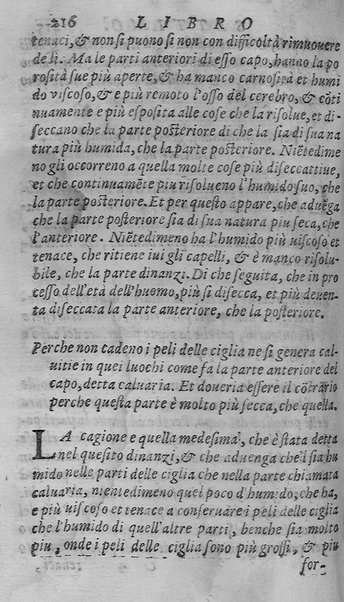 216 LIBRO
tenaci, & non si puono si non con difficoltà rimuovere
de lì. Ma le parti anteriori di esso capo, hanno la po
rosità sue più aperte, & ha manco carnosità et humi
do viscoso, & e più remoto l'osso del cerebro, & cõti
nuamente e più esposita alle cose che la risolue, et di-
seccano che la parte posteriore di che la sia di sua na
tura più humida, che la parte posteriore. Niẽtedime
no gli occorreno a quella molte cose più diseccattiue,
et che continuamẽte piu risolueno l'humido suo, che
la parte posteriore. Et per questo appare, che aduẽga
che la parte posteriore sia di sua natura piu seca, che
l'anteriore. Niẽtedimeno ha l'humido più uiscoso et
tenace, che ritiene iui gli capelli, & è manco risolu-
bile, che la parte dinanzi. Di che seguita, che in pro
cesso dell'età dell'huomo, più si disecca, et più deuen-
ta diseccata la parte anteriore, che la posteriore.
Perche non cadeno i peli delle ciglia ne si genera cal-
uitie in quei luochi come fa la parte anteriore del
capo, detta caluaria. Et doueria essere il cõtrario
perche questa parte è molto più secca, che quella.
LA cagione e quella medesima, che è stata detta
nel quesito dinanzi, & che aduenga che'l sia hu
mido nelle parti delle ciglia che nella parte chiamata
caluaria, nientedimeno quel poco d'humido, che ha,
e più uiscoso et tenace a conseruare i peli delle ciglia
che l'humido di quell'altre parti, benche sia molto
piu, onde i peli delle ciglia sono più grossi, & più
for-